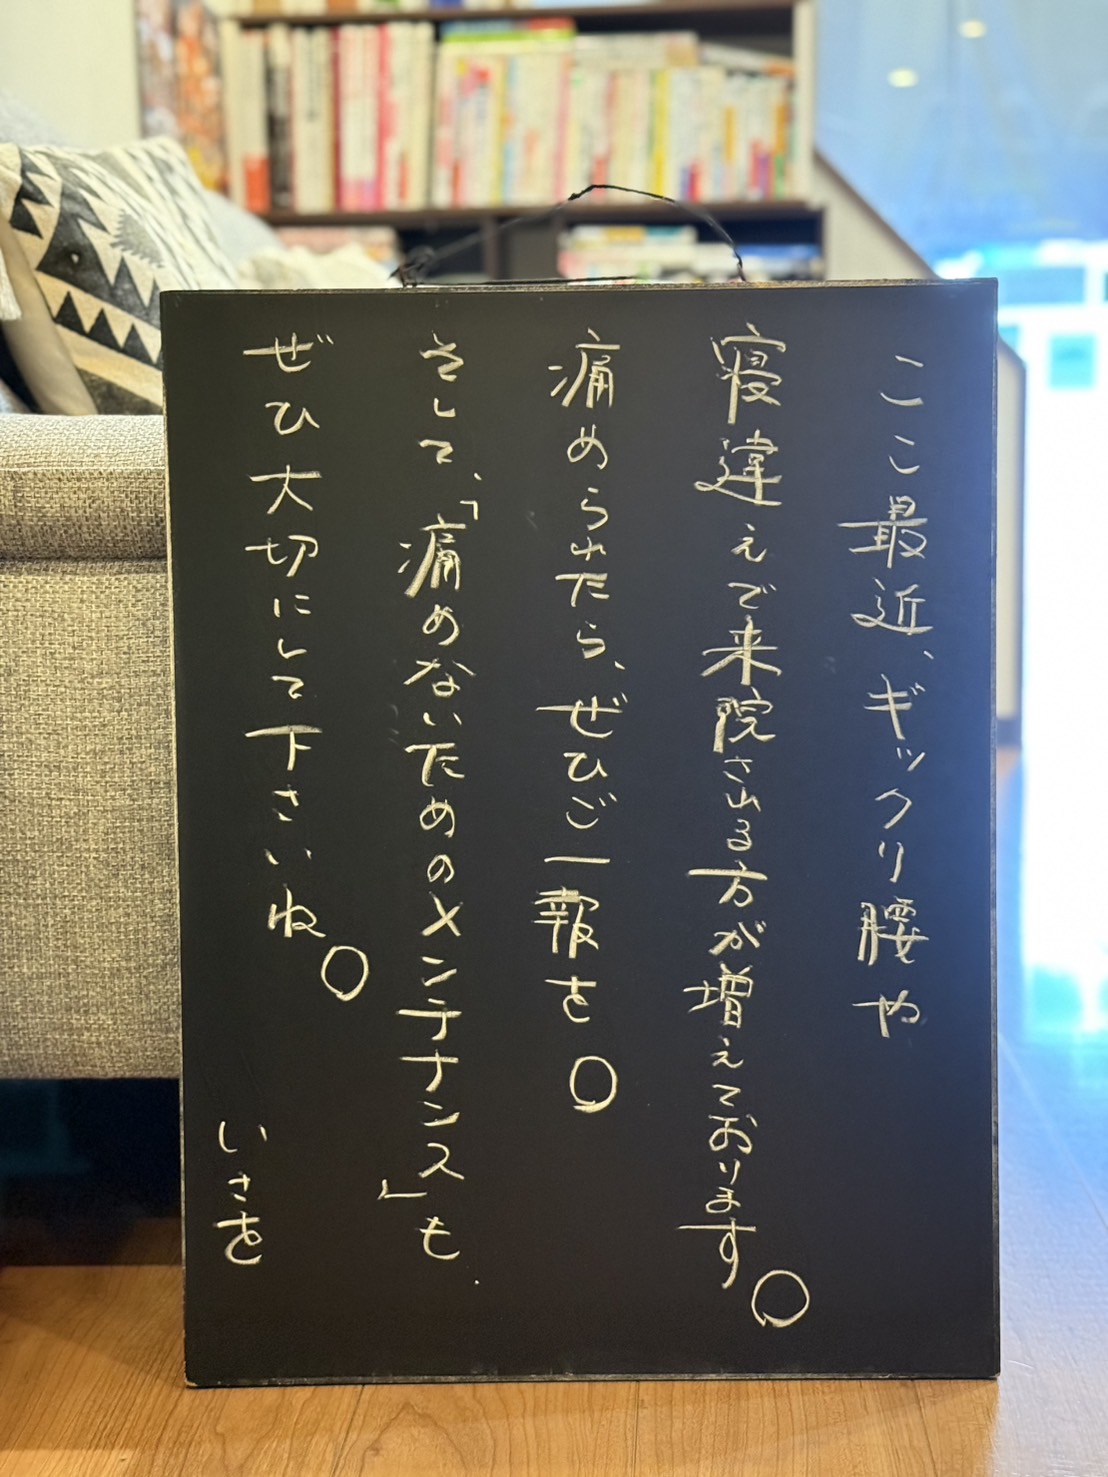 ここ最近、ギックリ腰や
寝違えで来院される方が増えております。
痛められたら、ぜひご一報を。
そして、「痛めないためのメンテナンス」も、
ぜひ大切にして下さいね。
いさを